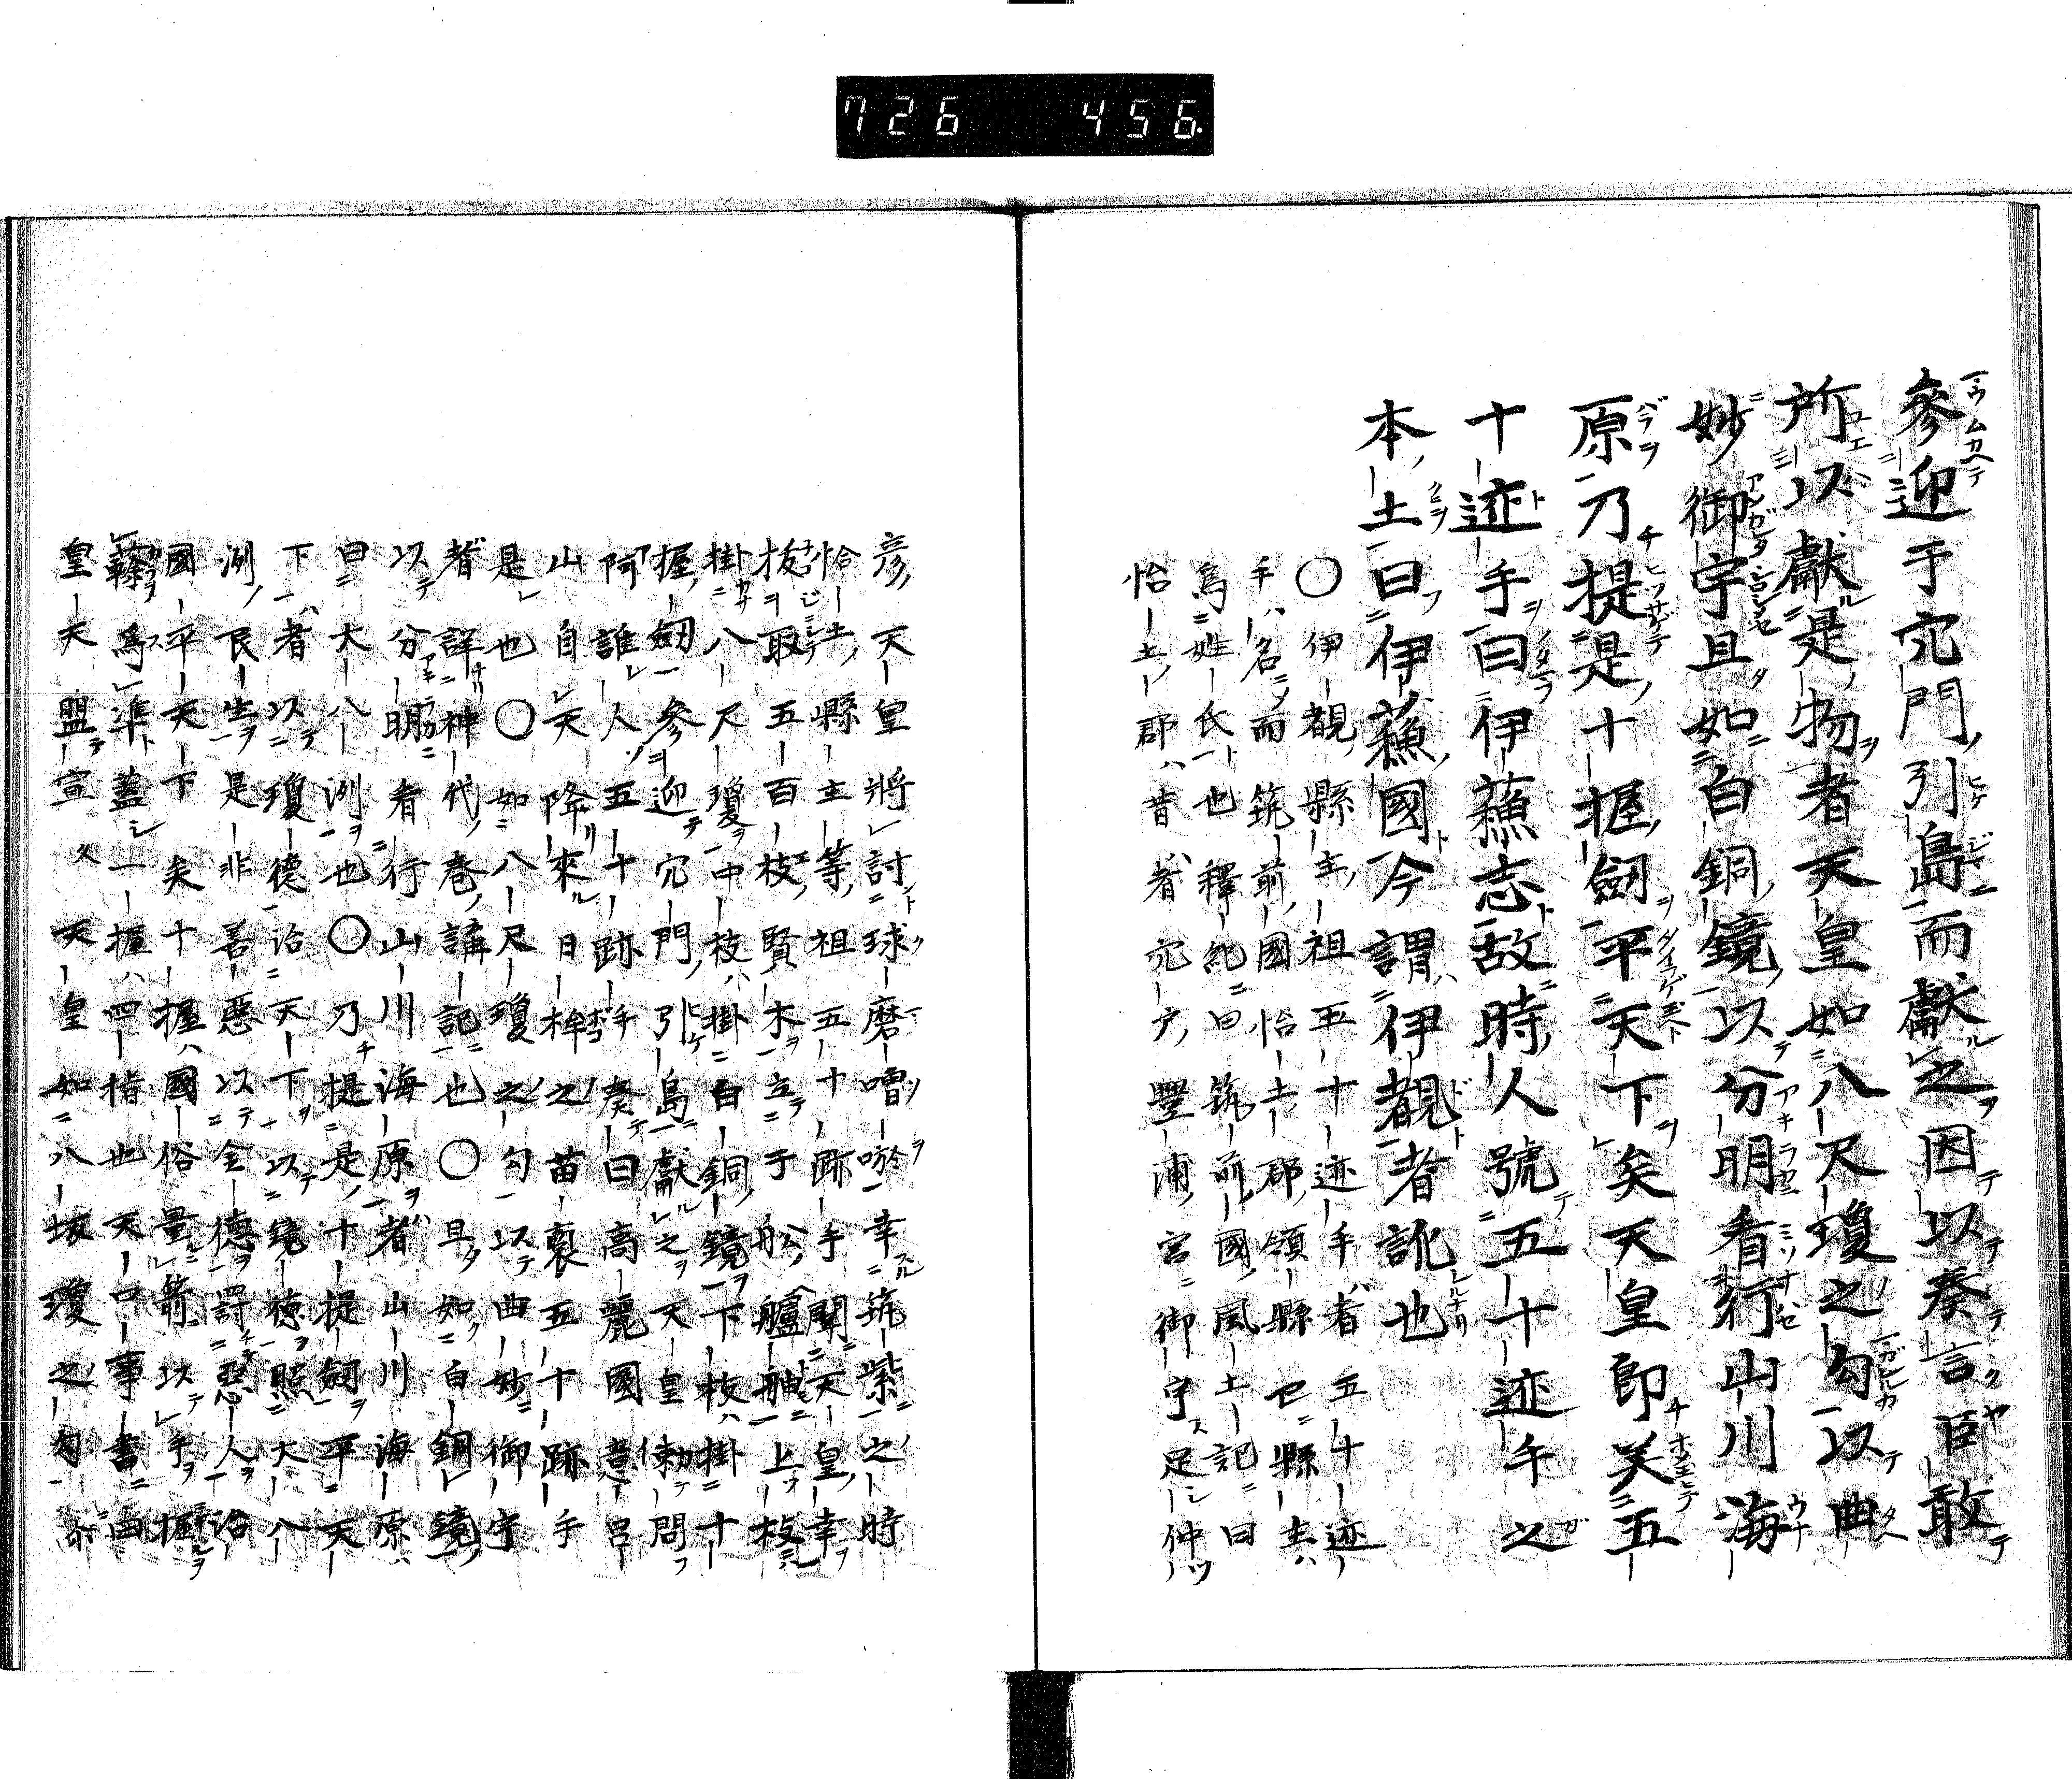 726 456
參迎于穴門引島而獻之因以奏言臣敢
所以獻是物者天皇如八尺瓊之勾以曲
妙御宇且如白銅鏡以分明看行山川海
原乃提是十握劒平天下矣天皇即美五
十迹手曰伊蘓志故時人號五十迹手之
本土曰伊蘓國今謂伊覩者訛也
○伊覩縣主祖五十迹手者五十迹
手名而筑前國怡土郡領縣已縣主
爲姓氏也釋紀曰筑前國風土記曰
怡土郡昔者穴戸豐浦宮御宇足仲
彦天皇將討球磨噌唹幸筑紫之時
怡土縣主等祖五十跡手聞天皇幸
拔取五百枝賢木立于舩艫舳上枝
掛八尺瓊中枝掛白銅鏡下枝掛十
握劒參迎穴門引島獻之天皇勅問
阿誰人五十跡手奏曰高麗國意呂
山自天降來日桙之苗裔五十跡手
是也○如八尺瓊之勾以曲妙御宇
者詳神代卷講記也○且如白銅鏡
以分明看行山川海原者山川海原
曰大八洲也○乃提是十握劒平天
下者以瓊德治天下以鏡德照大八
洲民生是非善惡以金德罸惡人治
國平天下矣十握國俗量箭以手握
爲準蓋一握四指也天口事書曰
皇天盟宣天皇如八坂瓊之勾